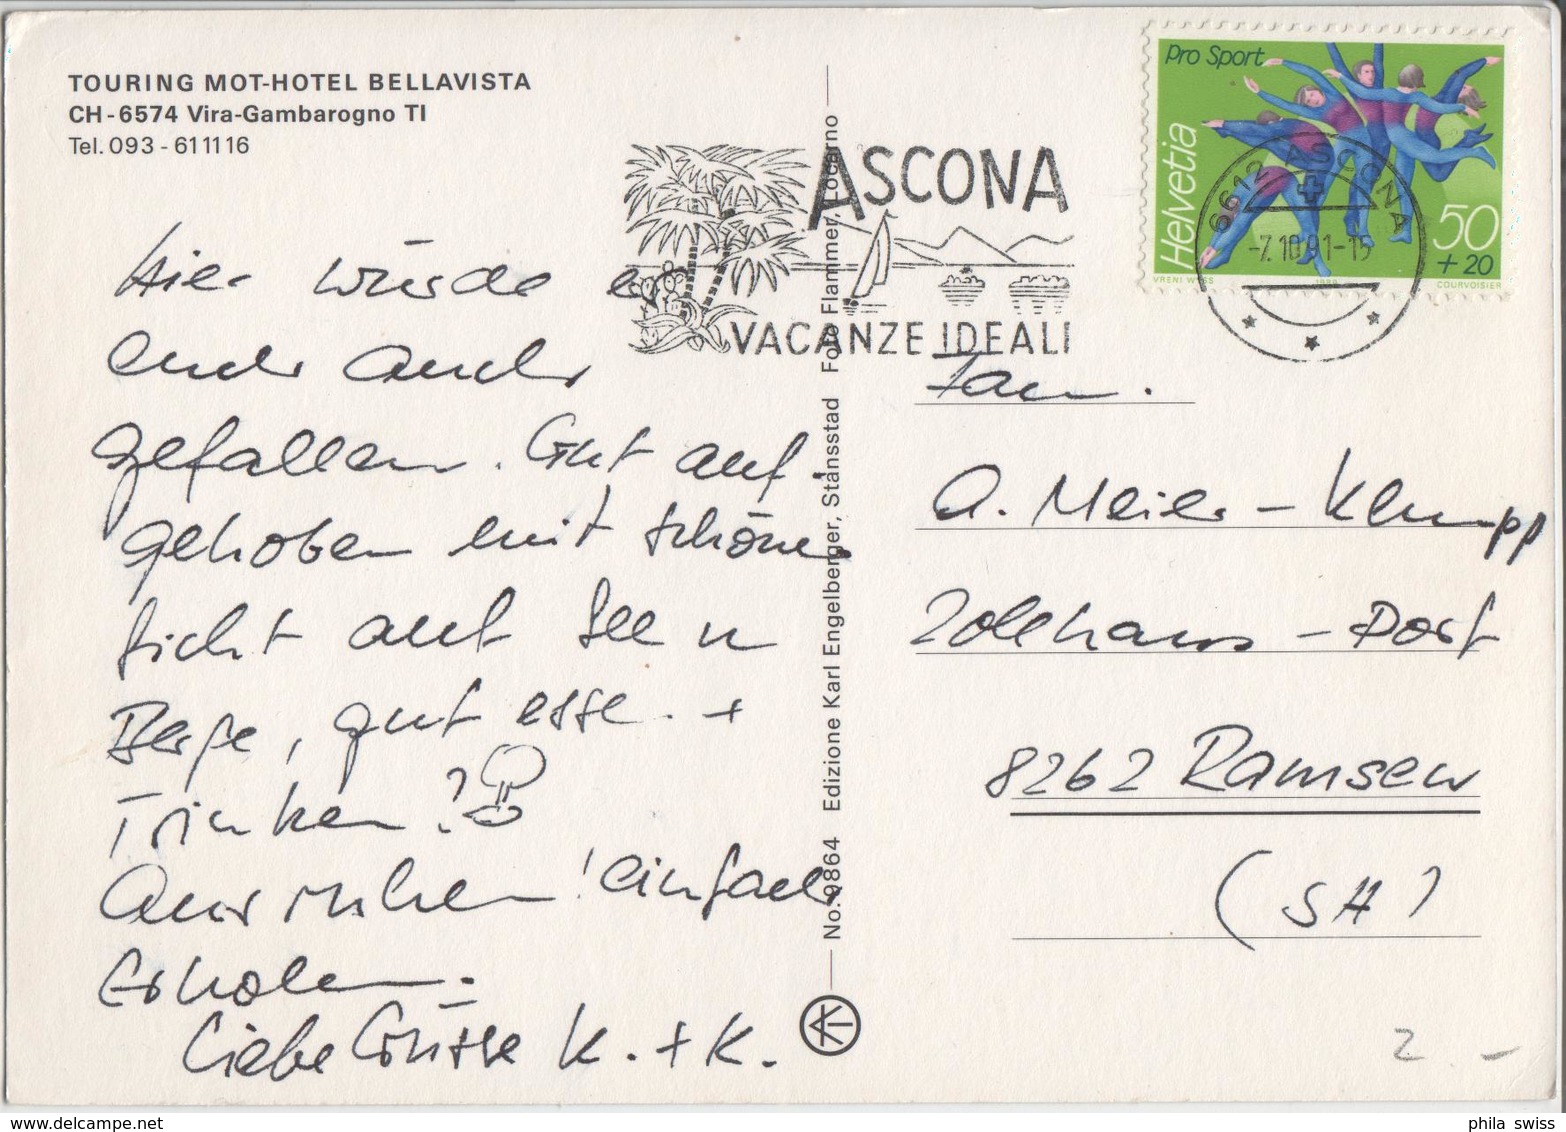 TOURING MOT-HOTEL BELLAVISTA
CH-6574 Vira-Gambarogno TI
Tel. 093-611116
Hier würde es
Euch auch
gefallen. Gut auf-
gehoben mit schöner
Sicht auf See u
Berge, gut essen +
Trinken!?
Ausruhen! einfach
Erholen.
Liebe Grüsse K. + K.
No. 9864 Edizione Karl Engelberger, Stansstad Foto Flammer, Locarno
ASCONA
VACANZE IDEALI
Pro Sport
Helvetia
50
+ 20
VRENI WYSS
1989
COURVOISIER
6612 ASCONA
-7.10.91-15
Fam.
A. Meier-Klumpp
Zollhaus-Dorf
8262 Ramsen
(SH)
2.-
phila swiss